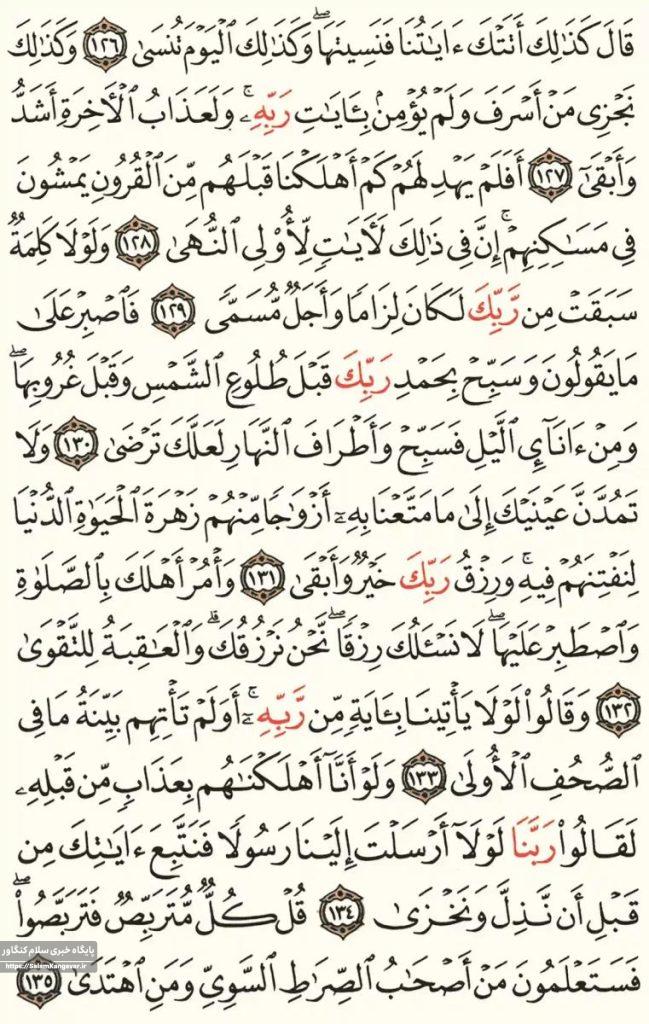 قَالَ كَذَٰلِكَ أَتَتْكَ ءَايَٰتُنَا فَنَسِيتَهَاۖ وَكَذَٰلِكَ ٱلْيَوْمَ تُنسَىٰ ١٢٦ وَكَذَٰلِكَ
نَجْزِى مَنْ أَسْرَفَ وَلَمْ يُؤْمِنۢ بِـَٔايَٰتِ رَبِّهِۦۚ وَلَعَذَابُ ٱلْأَخِرَةِ أَشَدُّ
وَأَبْقَىٰٓ ١٢٧ أَفَلَمْ يَهْدِ لَهُمْ كَمْ أَهْلَكْنَا قَبْلَهُم مِّنَ ٱلْقُرُونِ يَمْشُونَ
فِى مَسَٰكِنِهِمْۗ إِنَّ فِى ذَٰلِكَ لَأَيَٰتٍ لِّأُو۟لِى ٱلنُّهَىٰ ١٢٨ وَلَوْلَا كَلِمَةٌ
سَبَقَتْ مِن رَّبِّكَ لَكَانَ لِزَامًا وَأَجَلٌ مُّسَمًّى ١٢٩ فَٱصْبِرْ عَلَىٰ
مَا يَقُولُونَ وَسَبِّحْ بِحَمْدِ رَبِّكَ قَبْلَ طُلُوعِ ٱلشَّمْسِ وَقَبْلَ غُرُوبِهَاۖ
وَمِنْ ءَانَآئِ ٱلَّيْلِ فَسَبِّحْ وَأَطْرَافَ ٱلنَّهَارِ لَعَلَّكَ تَرْضَىٰ ١٣٠ وَلَا
تَمُدَّنَّ عَيْنَيْكَ إِلَىٰ مَا مَتَّعْنَا بِهِۦٓ أَزْوَٰجًا مِّنْهُمْ زَهْرَةَ ٱلْحَيَوٰةِ ٱلدُّنْيَا
لِنَفْتِنَهُمْ فِيهِۚ وَرِزْقُ رَبِّكَ خَيْرٌ وَأَبْقَىٰ ١٣١ وَأْمُرْ أَهْلَكَ بِٱلصَّلَوٰةِ
وَٱصْطَبِرْ عَلَيْهَاۖ لَا نَسْـَٔلُكَ رِزْقًاۖ نَّحْنُ نَرْزُقُكَۗ وَٱلْعَٰقِبَةُ لِلتَّقْوَىٰ
١٣٢ وَقَالُوا۟ لَوْلَا يَأْتِينَا بِـَٔايَةٍ مِّن رَّبِّهِۦٓۚ أَوَلَمْ تَأْتِهِم بَيِّنَةُ مَا فِى
ٱلصُّحُفِ ٱلْأُولَىٰ ١٣٣ وَلَوْ أَنَّآ أَهْلَكْنَٰهُم بِعَذَابٍ مِّن قَبْلِهِۦ
لَقَالُوا۟ رَبَّنَا لَوْلَآ أَرْسَلْتَ إِلَيْنَا رَسُولًا فَنَتَّبِعَ ءَايَٰتِكَ مِن
قَبْلِ أَن نَّذِلَّ وَنَخْزَىٰ ١٣٤ قُلْ كُلٌّ مُّتَرَبِّصٌ فَتَرَبَّصُوا۟ۖ
فَسَتَعْلَمُونَ مَنْ أَصْحَٰبُ ٱلصِّرَٰطِ ٱلسَّوِىِّ وَمَنِ ٱهْتَدَىٰ ١٣٥
پایگاه خبری سلام کنگاور
https://SalamKangavar.ir